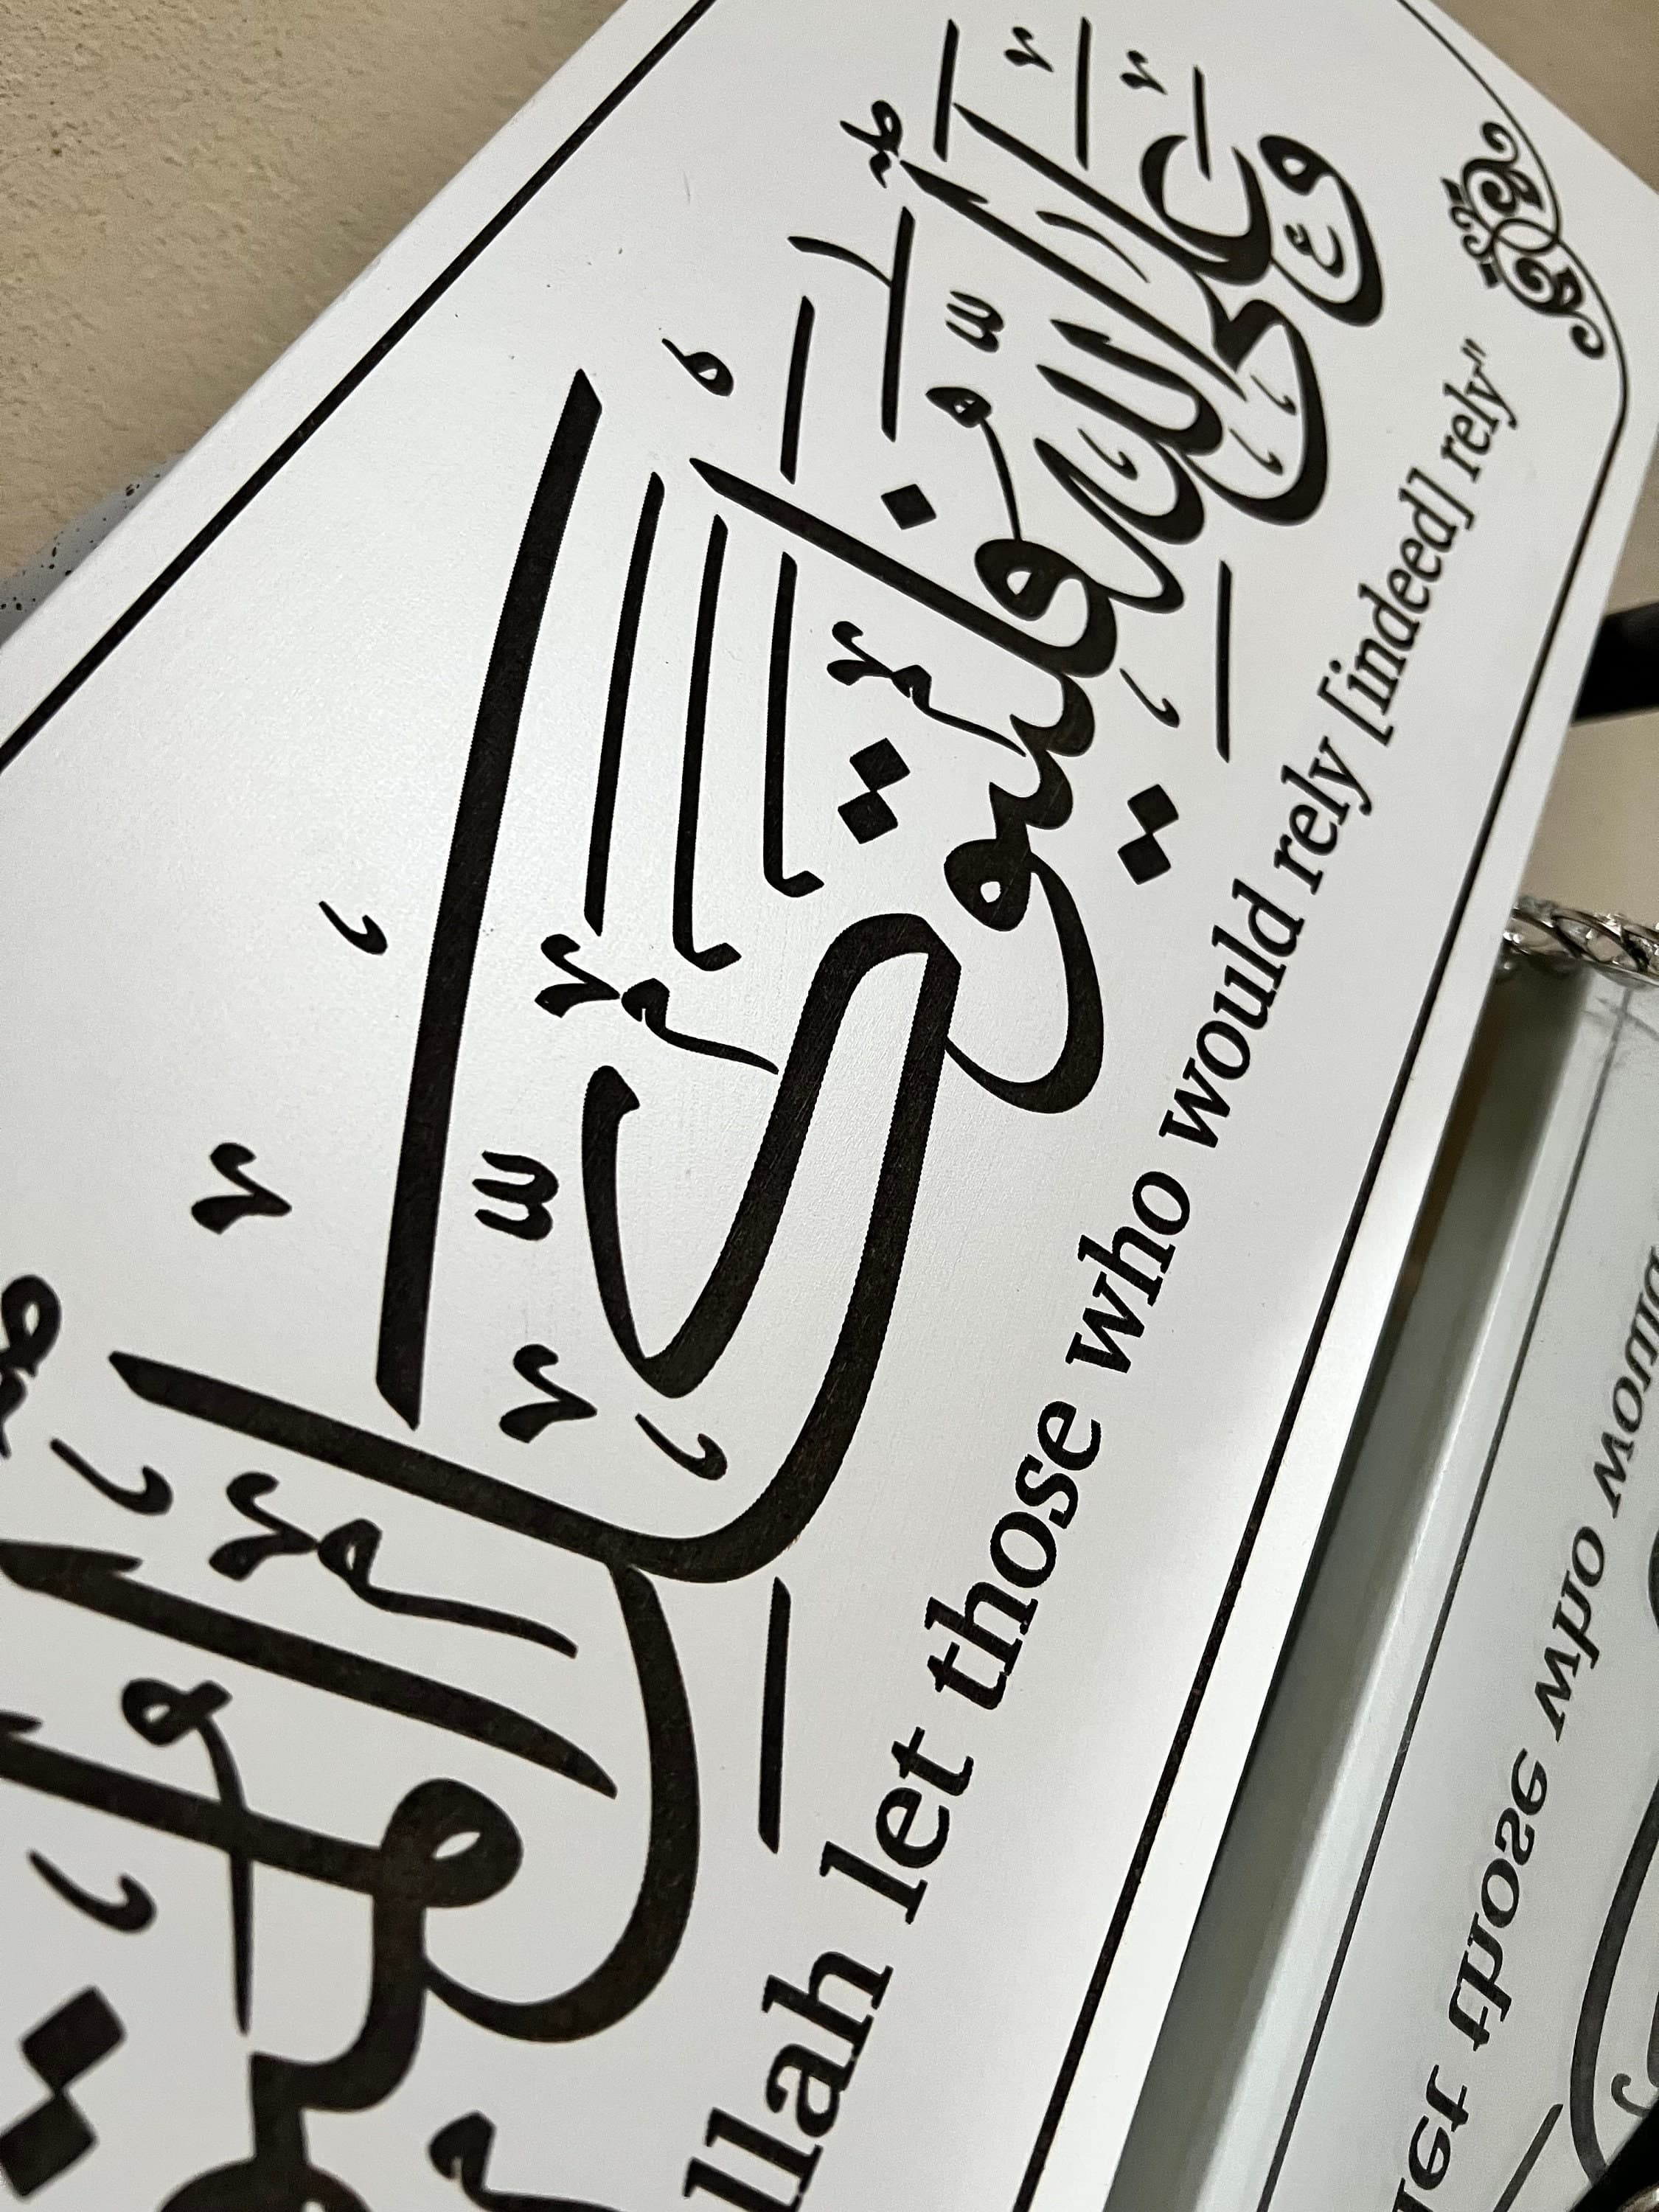 وَعَلَى اللَّهِ فَلْيَتَوَكَّلِ الْمُتَو
llah let those who would rely [indeed] rely"
let those who would